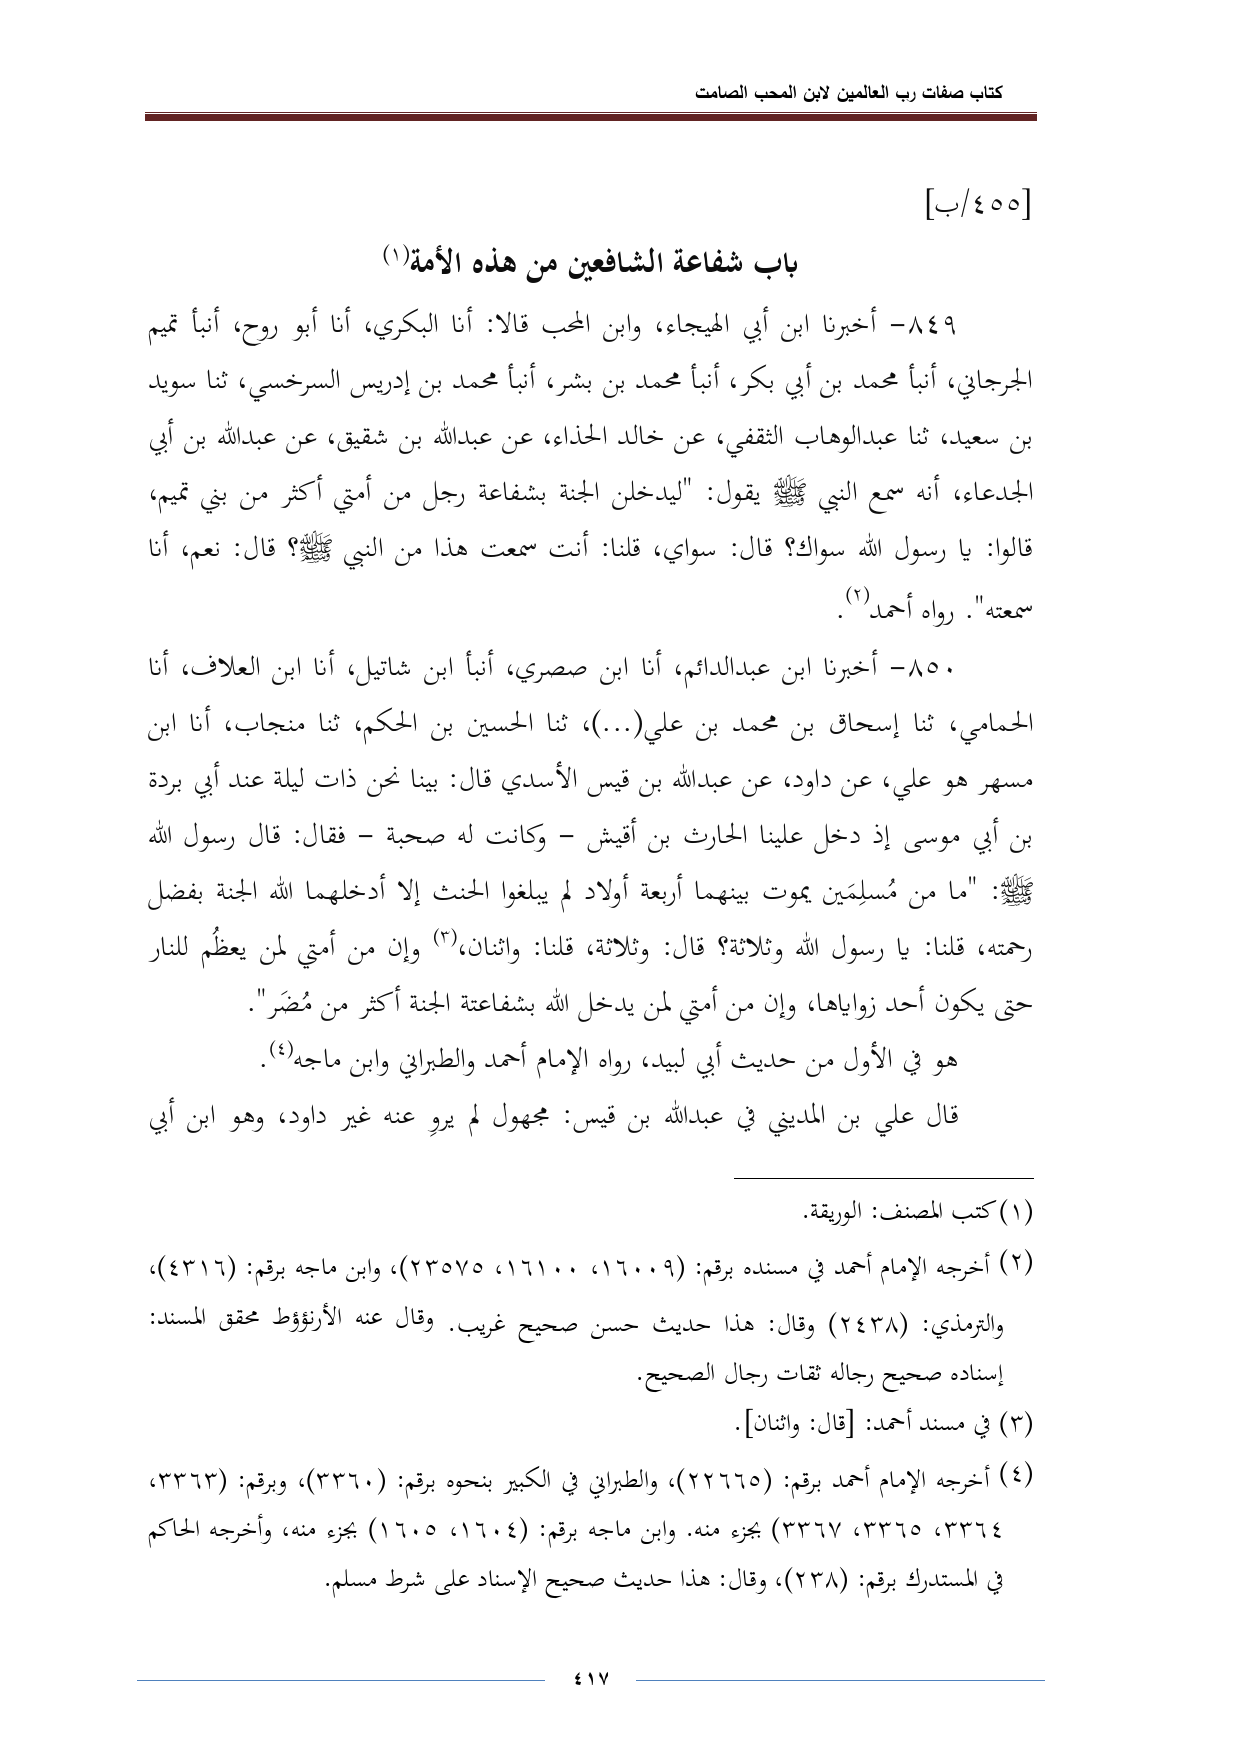 كتاب صفات رب العالمين لابن المحب الصامت
[٤٥٥/ب]
باب شفاعة الشافعين من هذه الأمة(١)
٨٤٩- أخبرنا ابن أبي الهيجاء، وابن المحب قالا: أنا البكري، أنا أبو روح، أنبأ تميم
الجرجاني، أنبأ محمد بن أبي بكر، أنبأ محمد بن بشر، أنبأ محمد بن إدريس السرخسي، ثنا سويد
بن سعيد، ثنا عبدالوهاب الثقفي، عن خالد الحذاء، عن عبدالله بن شقيق، عن عبدالله بن أبي
الجدعاء، أنه سمع النبي ﷺ يقول: "ليدخلن الجنة بشفاعة رجل من أمتي أكثر من بني تميم،
قالوا: يا رسول الله سواك؟ قال: سواي، قلنا: أنت سمعت هذا من النبي ﷺ؟ قال: نعم، أنا
سمعته". رواه أحمد(٢).
٨٥٠- أخبرنا ابن عبدالدائم، أنا ابن صصري، أنبأ ابن شاتيل، أنا ابن العلاف، أنا
الحمامي، ثنا إسحاق بن محمد بن علي(...)، ثنا الحسين بن الحكم، ثنا منجاب، أنا ابن
مسهر هو علي، عن داود، عن عبدالله بن قيس الأسدي قال: بينا نحن ذات ليلة عند أبي بردة
بن أبي موسى إذ دخل علينا الحارث بن أقيش – وكانت له صحبة – فقال: قال رسول الله
ﷺ: "ما من مُسلِمَين يموت بينهما أربعة أولاد لم يبلغوا الحنث إلا أدخلهما الله الجنة بفضل
رحمته، قلنا: يا رسول الله وثلاثة؟ قال: وثلاثة، قلنا: واثنان،(٣) وإن من أمتي لمن يعظُم للنار
حتى يكون أحد زواياها، وإن من أمتي لمن يدخل الله بشفاعتة الجنة أكثر من مُضَر".
هو في الأول من حديث أبي لبيد، رواه الإمام أحمد والطبراني وابن ماجه(٤).
قال علي بن المديني في عبدالله بن قيس: مجهول لم يروِ عنه غير داود، وهو ابن أبي
(١) كتب المصنف: الوريقة.
(٢) أخرجه الإمام أحمد في مسنده برقم: (١٦٠٠٩، ١٦١٠٠، ٢٣٥٧٥)، وابن ماجه برقم: (٤٣١٦)،
والترمذي: (٢٤٣٨) وقال: هذا حديث حسن صحيح غريب. وقال عنه الأرنؤؤط محقق المسند:
إسناده صحيح رجاله ثقات رجال الصحيح.
(٣) في مسند أحمد: [قال: واثنان].
(٤) أخرجه الإمام أحمد برقم: (٢٢٦٦٥)، والطبراني في الكبير بنحوه برقم: (٣٣٦٠)، وبرقم: (٣٣٦٣،
٣٣٦٤، ٣٣٦٥، ٣٣٦٧) بجزء منه. وابن ماجه برقم: (١٦٠٤، ١٦٠٥) بجزء منه، وأخرجه الحاكم
في المستدرك برقم: (٢٣٨)، وقال: هذا حديث صحيح الإسناد على شرط مسلم.
٤١٧